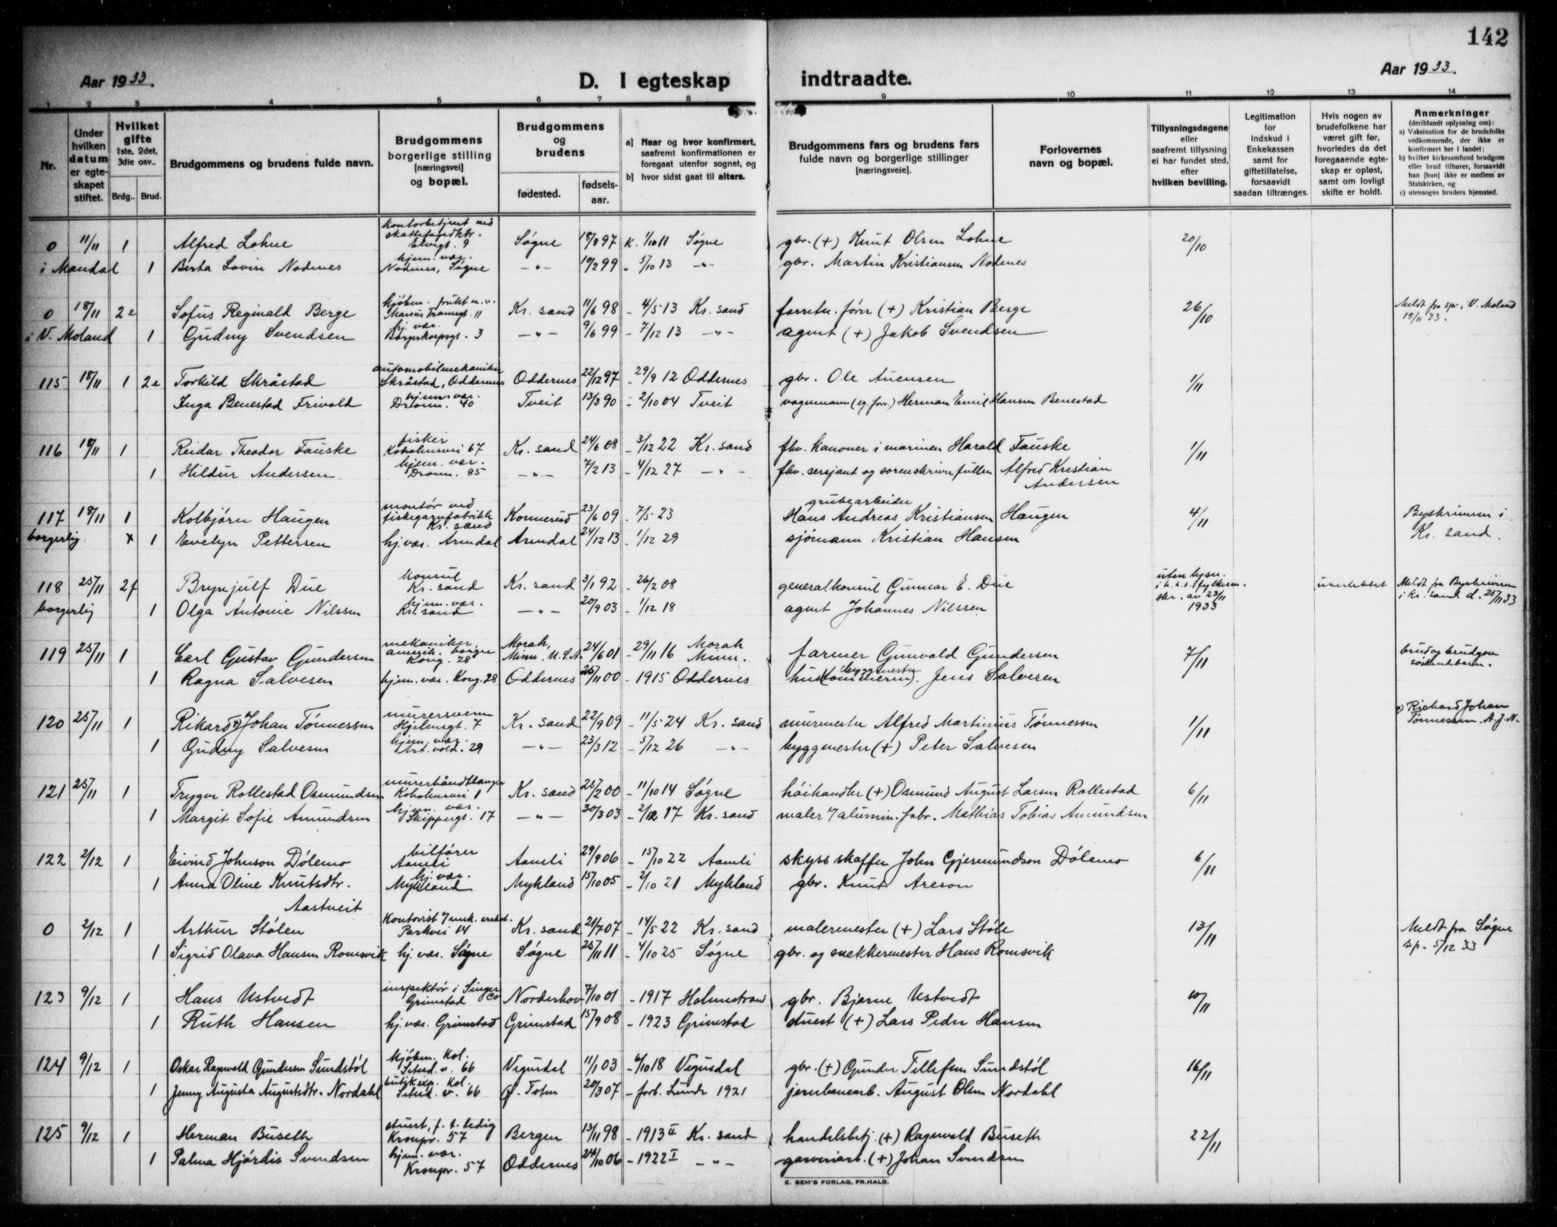 142
Aar 1933.
D. I egteskap indtraadte.
Aar 1933.
1 2 3 4 5 6 7 8 9 10 11 12 13 14
Nr.
Under hvilken datum er egteskapet stiftet.
Hvilket gifte 1ste, 2det, 3die osv.. Brdg.. Brud.
Brudgommens og brudens fulde navn.
Brudgommens borgerlige stilling [næringsvei] og bopæl.
Brudgommens og brudens fødested. fødselsaar.
a) Naar og hvor konfirmert, saafremt konfirmationen er foregaat utenfor sognet, og
b) hvor sidst gaat til alters.
Brudgommens fars og brudens fars fulde navn og borgerlige stillinger (næringsveie).
Forlovernes navn og bopæl.
Tillysningsdagene eller saafremt tillysning ei har fundet sted, efter hvilken bevilling.
Legitimation for indskud i Enkekassen samt for giftetillatelse, forsaavidt saadan tiltrænges.
Hvis nogen av brudefolkene har været gift før, hvorledes da det foregaaende egteskap er opløst, samt om lovligt skifte er holdt.
Anmerkninger (deriblandt oplysning om): a) Vaksination for de brudefolks vedkommende, der ikke er konfirmert her i landet; b) hvilket kirkesamfund brudgom eller brud tilhører, forsaavidt han [hun] ikke er medlem av Statskirken, og c) utensogns bruders hjemsted.
0 11/11 1 Alfred Lohne kontorbetjent ved skattefandktr. Elvegt. 9 Søgne 18/8 97 K. 1/10 11 Søgne gbr. (+) Knut Olsen Lohne 20/10
i Mandal 1 Berta Lovise Nodenes hjem. vær. Nodenes, Søgne -"- 19/2 99 - 5/10 13 -"- gbr. Martin Kristiansen Nodenes
0 18/11 2e Sofus Reginald Berge kjøbm. frukt m.v. 11 Kr. sand 11/6 98 - 4/5 13 Kr. sand forretn. fører (+) Kristian Berge 26/10 Meldt fra spr. i V. Moland 18/11 33.
i V. Moland 1 Gudny Svendsen hj. vær. 3 -"- 9/6 99 - 7/12 13 -"- agent (+) Jakob Svendsen
115 18/11 1 2e Torkild Skråstad automobilmekaniker Skråstad, Oddernes Oddernes 22/12 97 - 29/9 12 Oddernes gbr. Ole Auensen 1/11
Inga Benestad Frivold hjem. vær. Dronn. 40 Tveit 13/3 90 - 2/10 04 Tveit vognmann (eg. forv.) Herman Emil Hansen Benestad
116 18/11 1 Reidar Theodor Fauske fisker Kobolmvei 67 Kr. sand 24/6 08 - 3/12 22 Kr. sand fhv. kanoner i marinen Harald Fauske 1/11
1 Hildur Andersen hjem. vær. Dronn. 85 -"- 7/2 13 - 4/12 27 -"- fhv. sersjant og sorenskriverfullm. Alfred Kristian Andersen
117 18/11 1 Kolbjørn Haugen montør ved fiskegarnfabrikk Kr. sand Konnerud 23/6 09 - 7/5 23 grubearbeider Hans Andreas Kristiansen Haugen 4/11 Byskriveren i Kr. sand.
borgerlig x 1 Evelyn Pettersen hj. vær. Arendal Arendal 24/12 13 - 1/12 29 sjømann Kristian Hansen
118 25/11 2f Brynjulf Due Konsul Kr. sand Kr. sand 3/1 92 - 26/2 08 generalkonsul Gunnar E. Due uten lysn. av 23/11 1933 Meldt fra Byskriveren i Kr. sand d. 25/11 33
borgerlig 1 Olga Antonie Nilssen hjem. vær. Kr. sand -"- 20/9 03 - 1/12 18 agent Johannes Nilssen
119 25/11 1 Carl Gustav Gundersen mekaniker amerik. borger Kong. 28 Morah, Minn. U.S.A. 24/6 01 - 29/11 16 Morah Minn. farmer Gunvald Gundersen 7/11 brud og brudgom søskendebarn.
1 Ragna Salvesen hjem. vær. Kong. 28 Oddernes 25/11 00 - 1915 Oddernes (byggmester) Jens Salvesen
120 25/11 1 Rikard x) Johan Tønnessen murersvenn 7 Kr. sand 22/9 09 - 11/5 24 Kr. sand murmester Alfred Martinius Tønnessen 1/11 x) Richard Johan Tønnessen. A.J.N.
1 Gudny Salvesen hjem. vær. Art. vold. 29 -"- 23/3 12 - 5/12 26 -"- byggmester (+) Peter Salvesen
121 25/11 1 Trygve Rollestad Osmundsen murerhåndtlanger Kobolmvei 1 Kr. sand 25/2 00 - 11/10 14 Søgne høihandler (+) Osmund August Larsen Rollestad 6/11
1 Margit Sofie Amundsen hj. vær. Skippergt. 17 -"- 30/3 03 - 2/12 17 Kr. sand maler v/ alumin. fabr. Mathias Tobias Amundsen
122 2/12 1 Eivind Johnson Dølemo bilfører Aamli Aamli 29/9 06 - 15/10 22 Aamli skysskaffer John Gjermundson Dølemo 6/11
1 Anna Oline Knutsdtr. Aastveit hj. vær. Mykland Mykland 15/10 05 - 2/10 21 Mykland gbr. Knut Areson
0 2/12 1 Arthur Stølen Kontorist v/ mek. verkst. Parkvei 14 Kr. sand 21/7 07 - 14/5 22 Kr. sand malermester (+) Lars Støle 13/11 Meldt fra Søgne sp. 5/12 33
1 Sigrid Olava Hansen Romsvik hj. vær. Søgne Søgne 25/11 11 - 4/10 25 Søgne gbr. og snekkermester Hans Romsvik
123 9/12 1 Hans Ustvedt inspektør i Singer Co Grimstad Norderhov 7/10 01 - 1917 Holmestrand gbr. Bjarne Ustvedt 10/11
1 Ruth Hansen hj. vær. Grimstad Grimstad 15/9 08 - 1923 Grimstad stuert (+) Lars Peder Hansen
124 9/12 1 Oskar Ragnvald Gundersen Sundstøl Kjøbm. Kol. Setesd. v. 66 Vigusdal 11/1 03 - 6/10 18 Vigusdal gbr. (+) Gunder Tellefsen Sundstøl 16/11
1 Jenny Augusta Augustsdtr. Nordahl butikeksp. Kol. Setesd. v. 66 Ø. Toten 20/3 07 - forb. Lunde 1921 jernbanearb. August Olsen Nordahl
125 9/12 1 Herman Buseth stuert, f. t. ledig Kronpr. 57 Bergen 13/11 98 - 1913 II Kr. sand handelsbetj. (+) Ragnvald Buseth 22/11
1 Palma Hjørdis Svendsen hjem. vær. Kronpr. 57 Oddernes 24/10 06 - 1922 I -"- garveriarb. (+) Johan Svendsen
E. SEM'S FORLAG, FR.HALD.